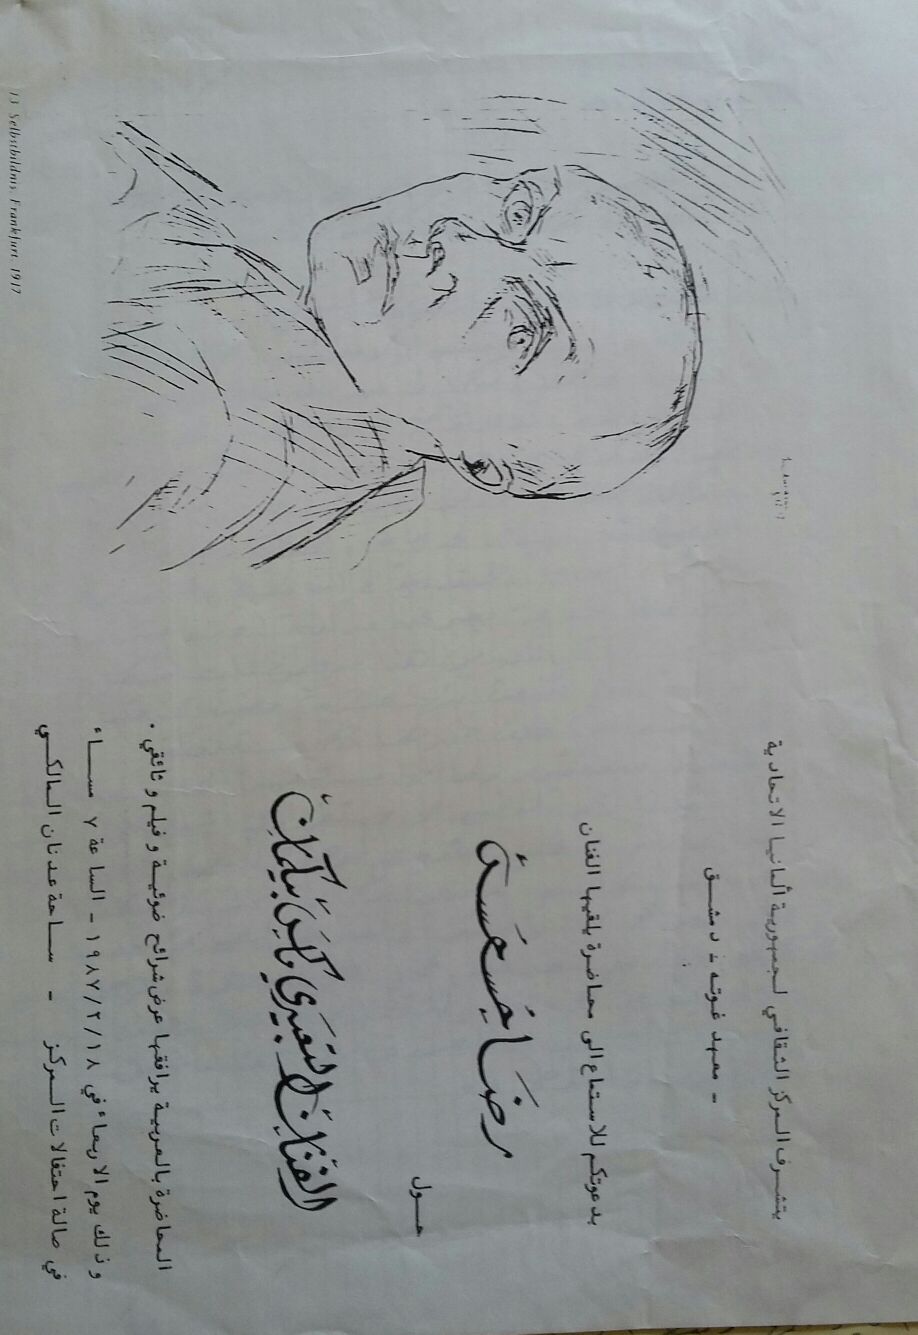 يتشرف المركز الثقافي لجمهورية ألمانيا الاتحادية
- معهد غوته / دمشق -
بدعوتكم للاستماع الى محاضرة يلقيها الفنان
رضا حسحس
حول
الفنان التعبيري ماكس بيكمان
المحاضرة بالعربية يرافقها عرض شرائح ضوئية وفيلم وثائقي.
وذلك يوم الاربعاء في ١٩٨٧/٢/١٨ - الساعة ٧ مساء
في صالة احتفالات المركز - ساحة عدنان المالكي
13 Selbstbildnis, Frankfurt, 1917